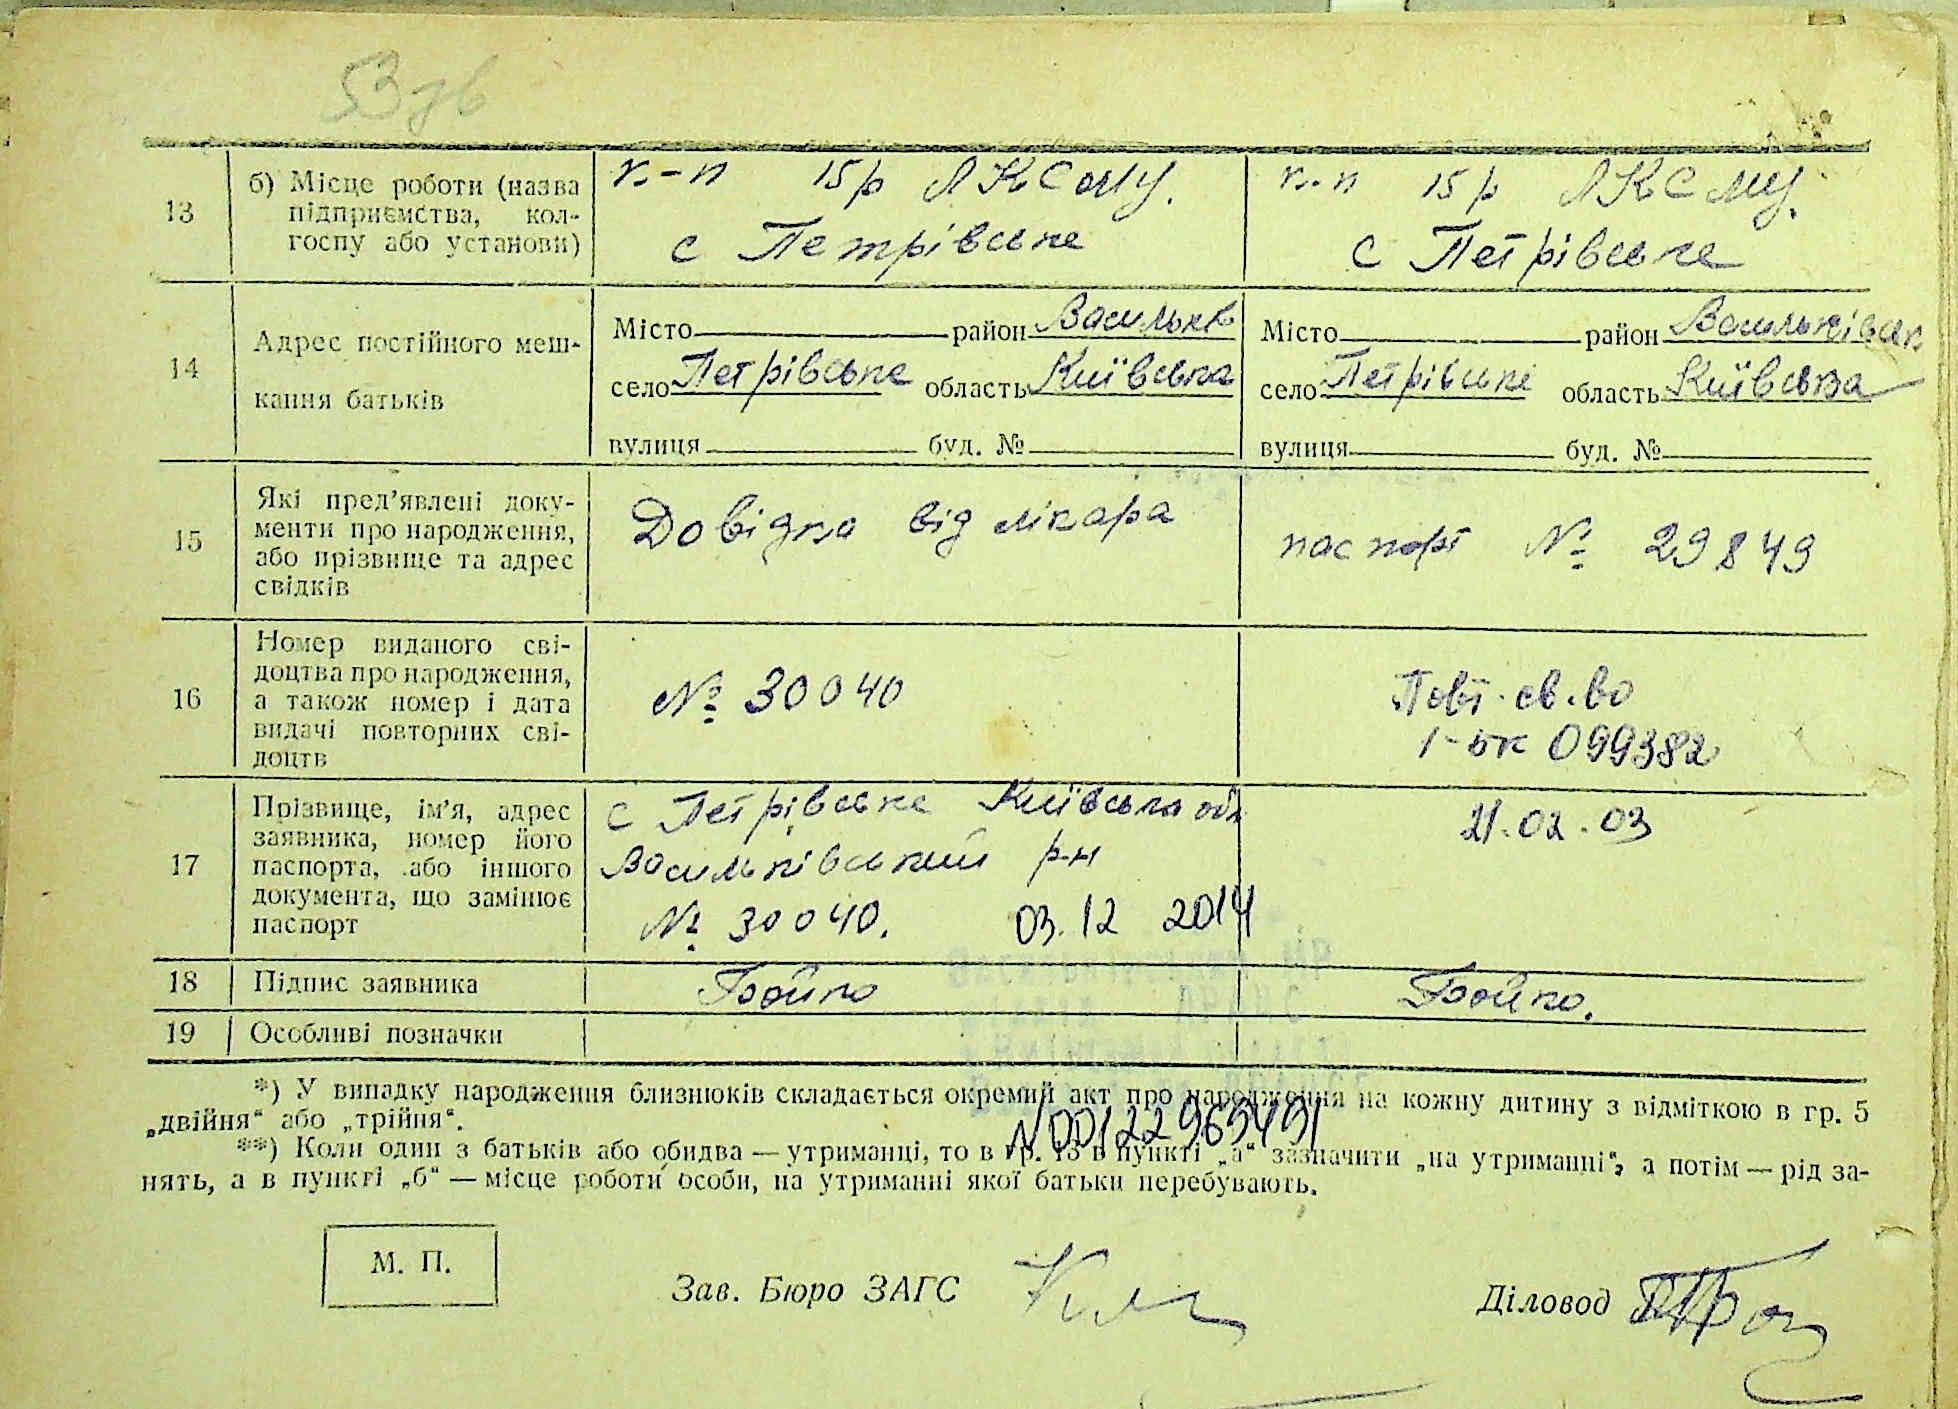 53 зв
13
б) Місце роботи (назва
підприємства, кол-
госпу або установи)
к-п 15 р ЛКСМУ.
с Петрівське
к-п 15 р ЛКСМУ.
с Петрівське
14
Адрес постійного меш-
кання батьків
Місто район Васильків
село Петрівське область Київська
вулиця буд. №
Місто район Васильківськ
село Петрівське область Київська
вулиця буд. №
15
Які пред’явлені доку-
менти про народження,
або прізвище та адрес
свідків
Довідка від лікара
паспорт № 29849
16
Номер виданого сві-
доцтва про народження,
а також номер і дата
видачі повторних сві-
доцтв
№ 30040
Повт. св.во
1-бк 099382
17
Прізвище, ім’я, адрес
заявника, номер його
паспорта, або іншого
документа, що замінює
паспорт
с Петрівське Київська обл
Васильківський р-н
№ 30040. 03.12 2014
21.02.03
18
Підпис заявника
Бойко
Бойко.
19
Особливі позначки
*) У випадку народження близнюків складається окремий акт про народження на кожну дитину з відміткою в гр. 5
„двійня“ або „трійня“.
N00122969491
**) Коли один з батьків або обидва — утриманці, то в гр. 13 в пункті „а“ зазначити „на утриманні“, а потім — рід за-
нять, а в пункті „б“ — місце роботи особи, на утриманні якої батьки перебувають.
М. П.
Зав. Бюро ЗАГС
Діловод